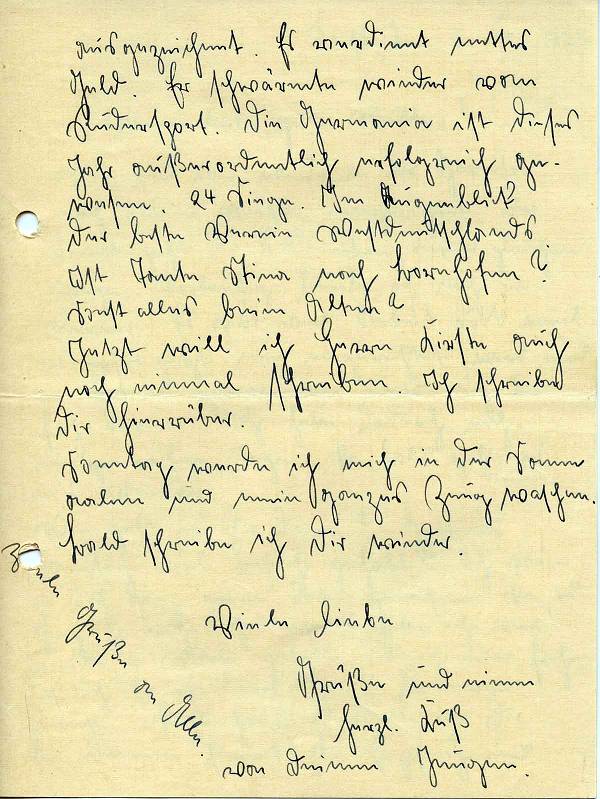 ausgezeichnet. Er verdient nettes
Geld. Er schwärmte wieder vom
Rudersport. Die Germania ist dieses
Jahr außerordentlich erfolgreich ge-
wesen. 24 Siege. Im Augenblick
der beste Verein Westdeutschlands
Ist Tante Stina noch
Sonst alles beim Alten?
Jetzt will ich Herrn auch
noch einmal schreiben. Ich schreibe
Dir hierrüber.
Sonntag werde ich mich in der Sonne
aalen und mein ganzes Zeug waschen.
Bald schreibe ich Dir wieder.
Viele liebe
Grüße und einen
herzl. Kuß
von Deinem Jungen.
Viele Grüße an